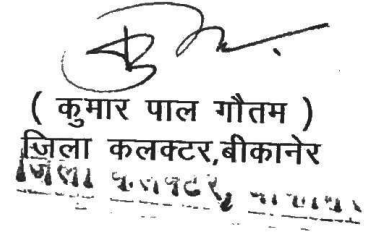 ( कुमार पाल गौतम )
जिला कलक्टर,बीकानेर
जिला कलक्टर,